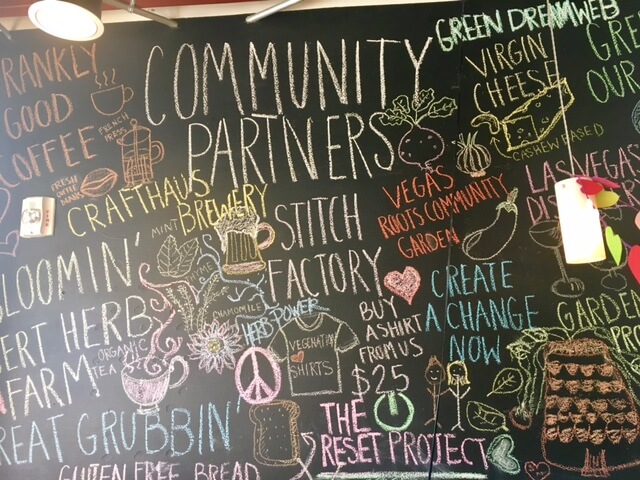 COMMUNITY
PARTNERS
RANKLY
GOOD
OFFEE
FRENCH
PRESS
FRESH
COFFEE
BEANS
GREEN DREAMWEB
VIRGIN
CHEESE
CASHEW BASED
GRE
OUR
CRAFTHAUS
BREWERY
STITCH
FACTORY
VEGAS
ROOTS COMMUNITY
GARDEN
LAS VEGAS
DIS
LOOMIN'
ERT HERB
FARM
MINT
THYME
CHAMOMILE
ORGANIC
TEA
HERB POWER
VEGENATION
SHIRTS
BUY
A SHIRT
FROM US
$25
CREATE
A CHANGE
NOW
GARDEN
PRO
REAT GRUBBIN'
GLUTEN FREE BREAD
THE
RESET PROJECT